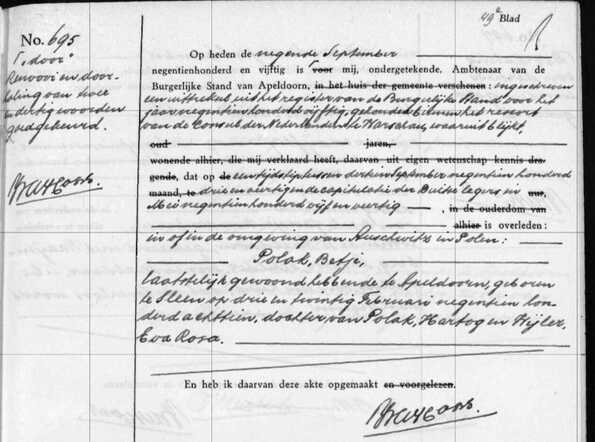 49e Blad
No. 695
"door"
Renvooi en door-
haling van twee
en dertig woorden
goedgekeurd.
Op heden de negende September
negentienhonderd en vijftig is voor mij, ondergetekende, Ambtenaar van de
Burgerlijke Stand van Apeldoorn, in het huis der gemeente verschenen: ingeschreven
een uittreksel uit het register van de Burgerlijke Stand voor het
jaar negentienhonderd vijftig, gehouden binnen het ressort
van de Consul der Nederlanden te Warschau, waaruit blijkt,
oud jaren,
wonende alhier, die mij verklaard heeft, daarvan uit eigen wetenschap kennis dra-
gende, dat op de een tijdstip tussen dertien September negentien honderd
maand, te drie en veertig en de capitulatie der Duitse legers in uur,
Mei negentienhonderd vijf en veertig, in de ouderdom van
alhier is overleden:
in of in de omgeving van Auschwitz in Polen:
Polak, Betje,
laatstelijk gewoond hebbende te Apeldoorn, geboren
te Sleen op drie en twintig Februari negentien hon-
derd achttien, dochter van Polak, Hartog en Wijler,
Eva Rosa.
En heb ik daarvan deze akte opgemaakt en voorgelezen.